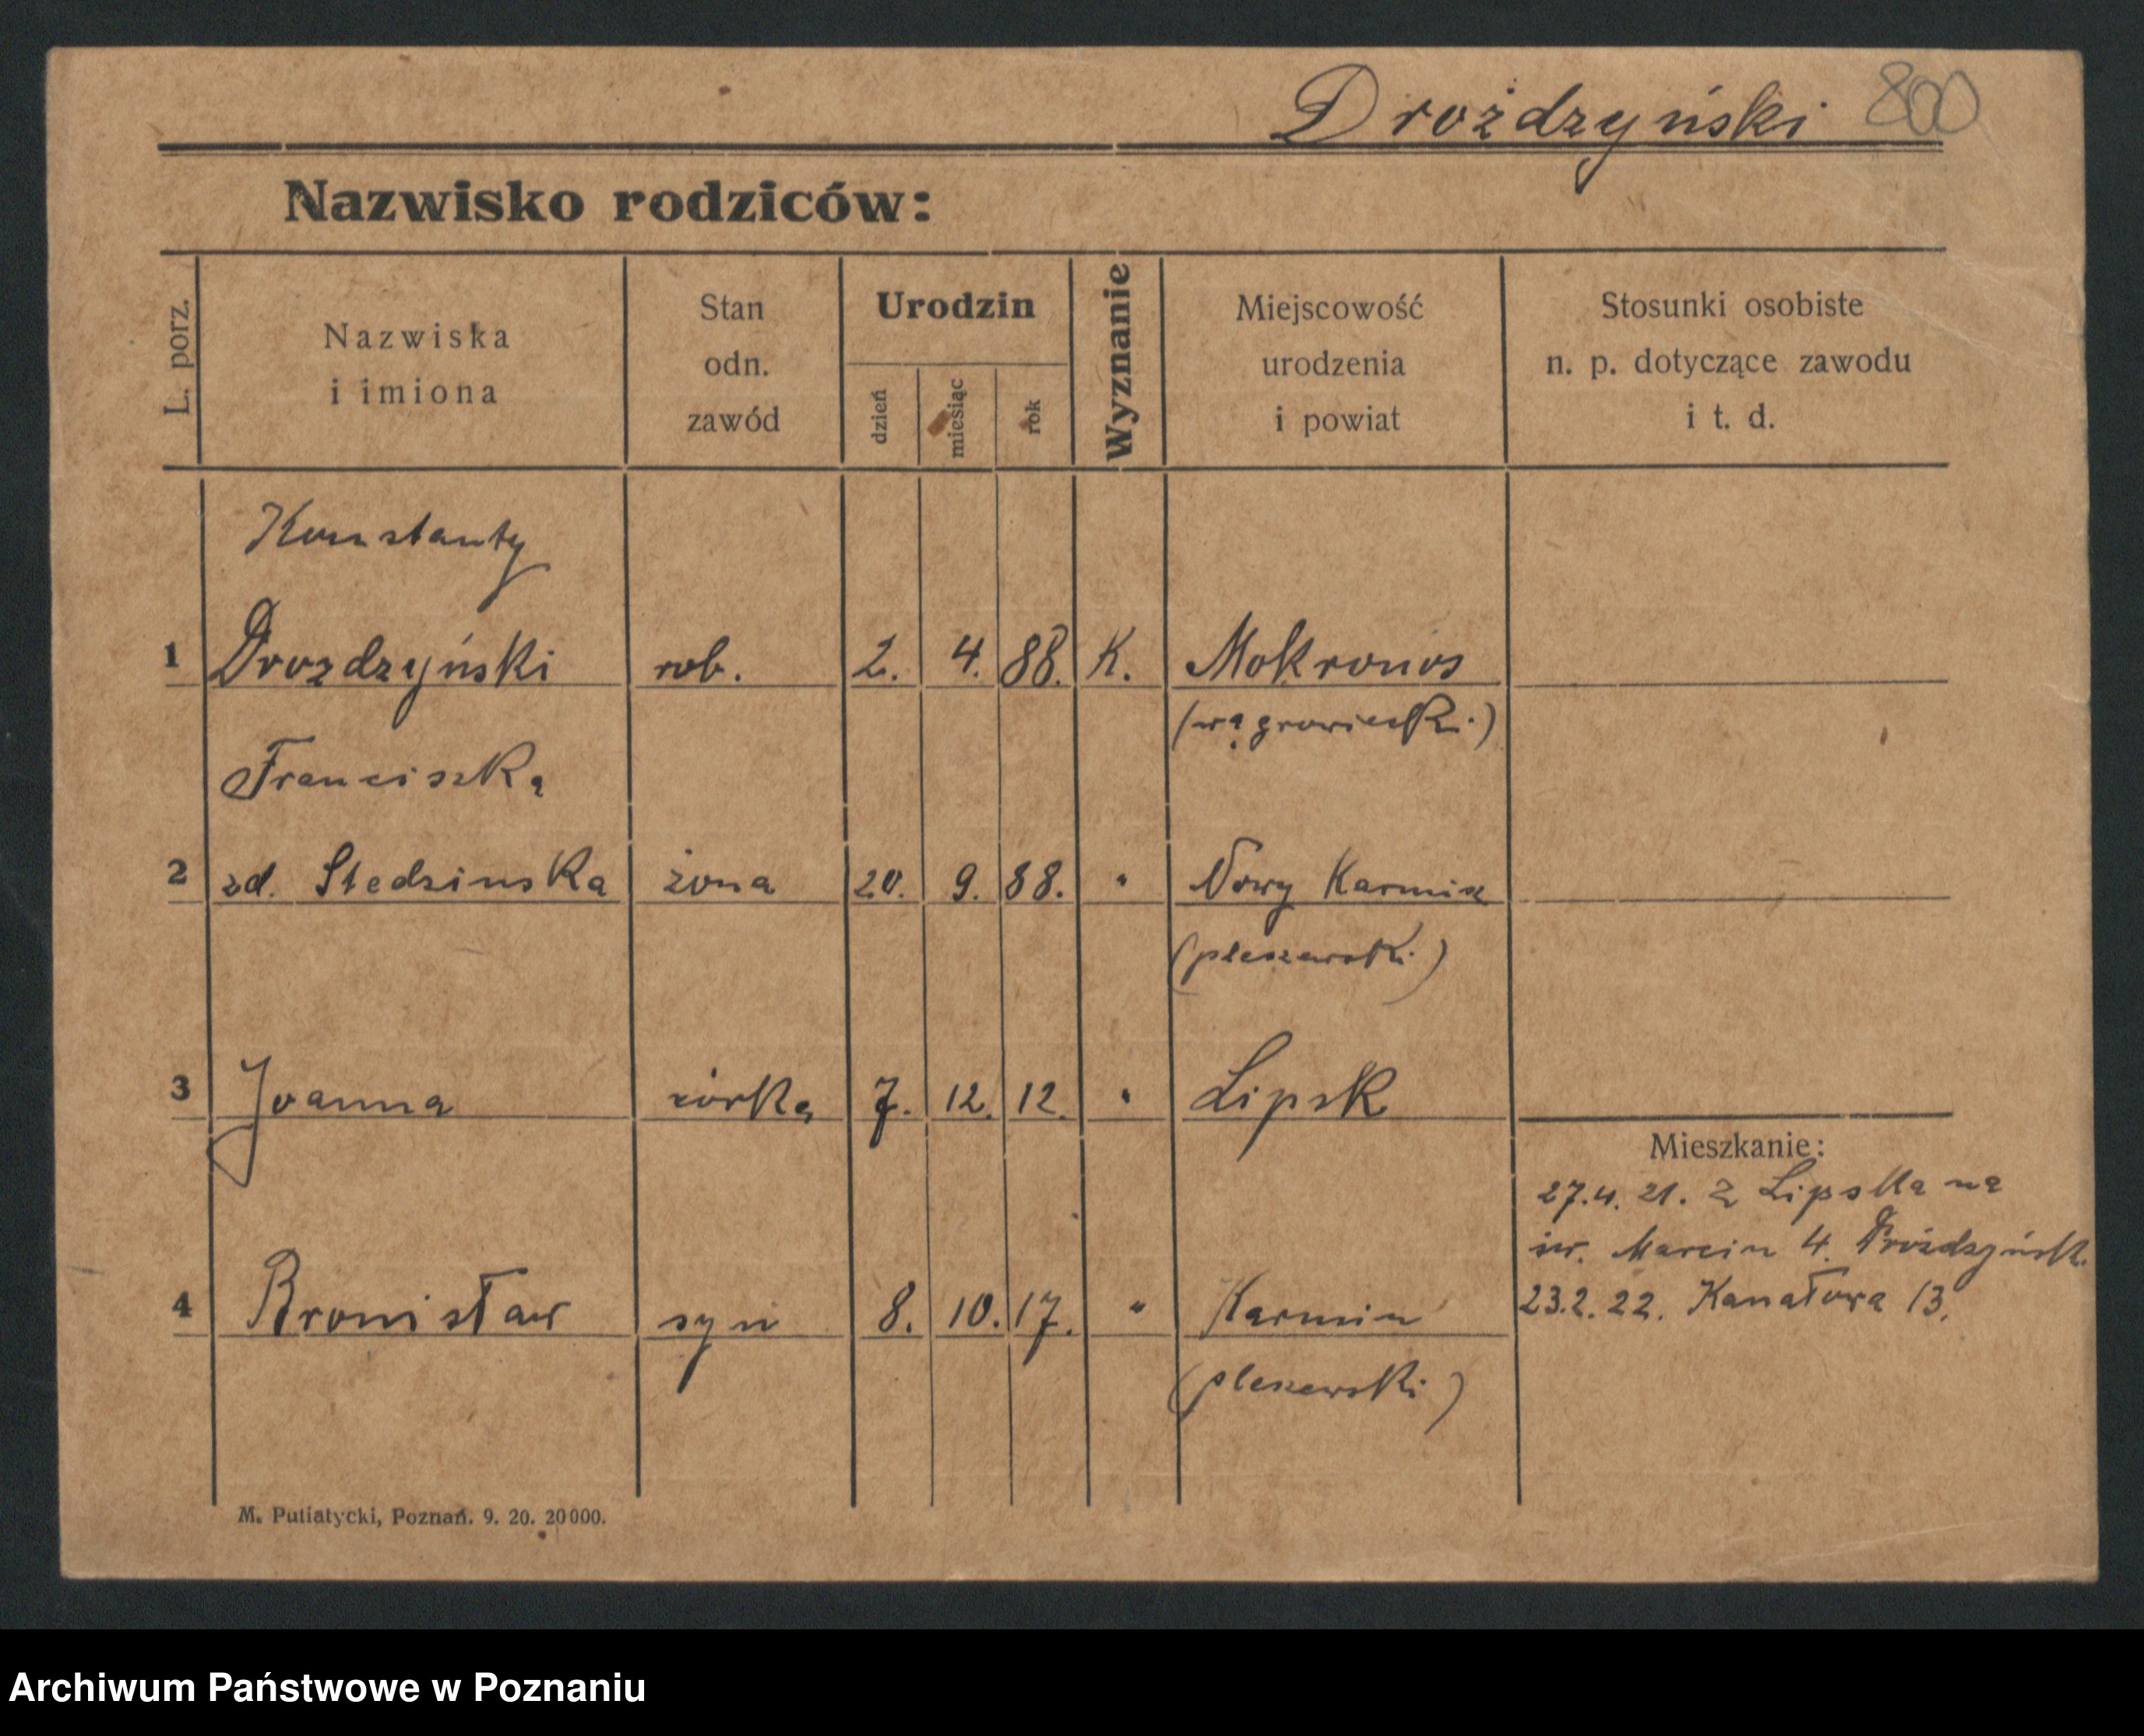 Drożdzyński 800
Nazwisko rodziców:
L. porz.
Nazwiska
i imiona
Stan
odn.
zawód
Urodzin
dzień
miesiąc
rok
Wyznanie
Miejscowość
urodzenia
i powiat
Stosunki osobiste
n. p. dotyczące zawodu
i t. d.
Konstanty
1 Drozdzyński rob. 2. 4. 88. K. Mokronos
(wągrowieck.)
Franciszka
2 zd. Stedzinska żona 20. 9. 88. " Nowy Karmin
(pleszewsk.)
3 Joanna córka 7. 12. 12. " Lipsk
Mieszkanie:
27.4. 21. z Lipska na
św. Marcin 4. Drożdzyńsk.
23.2. 22. Kanałowa 13.
4 Bronisław syn 8. 10. 17. " Karmin
(pleszewski)
M. Putiatycki, Poznań. 9. 20. 20000.
Archiwum Państwowe w Poznaniu